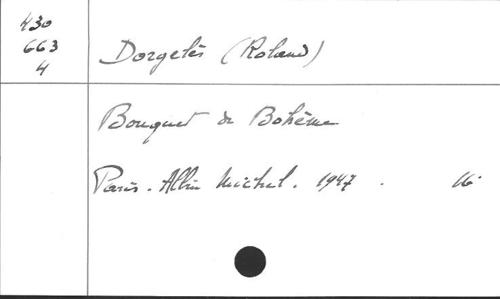 430
663
4
Dorgelès (Roland)
Bouquet de Bohème
Paris. Albin Michel. 1947. 16°